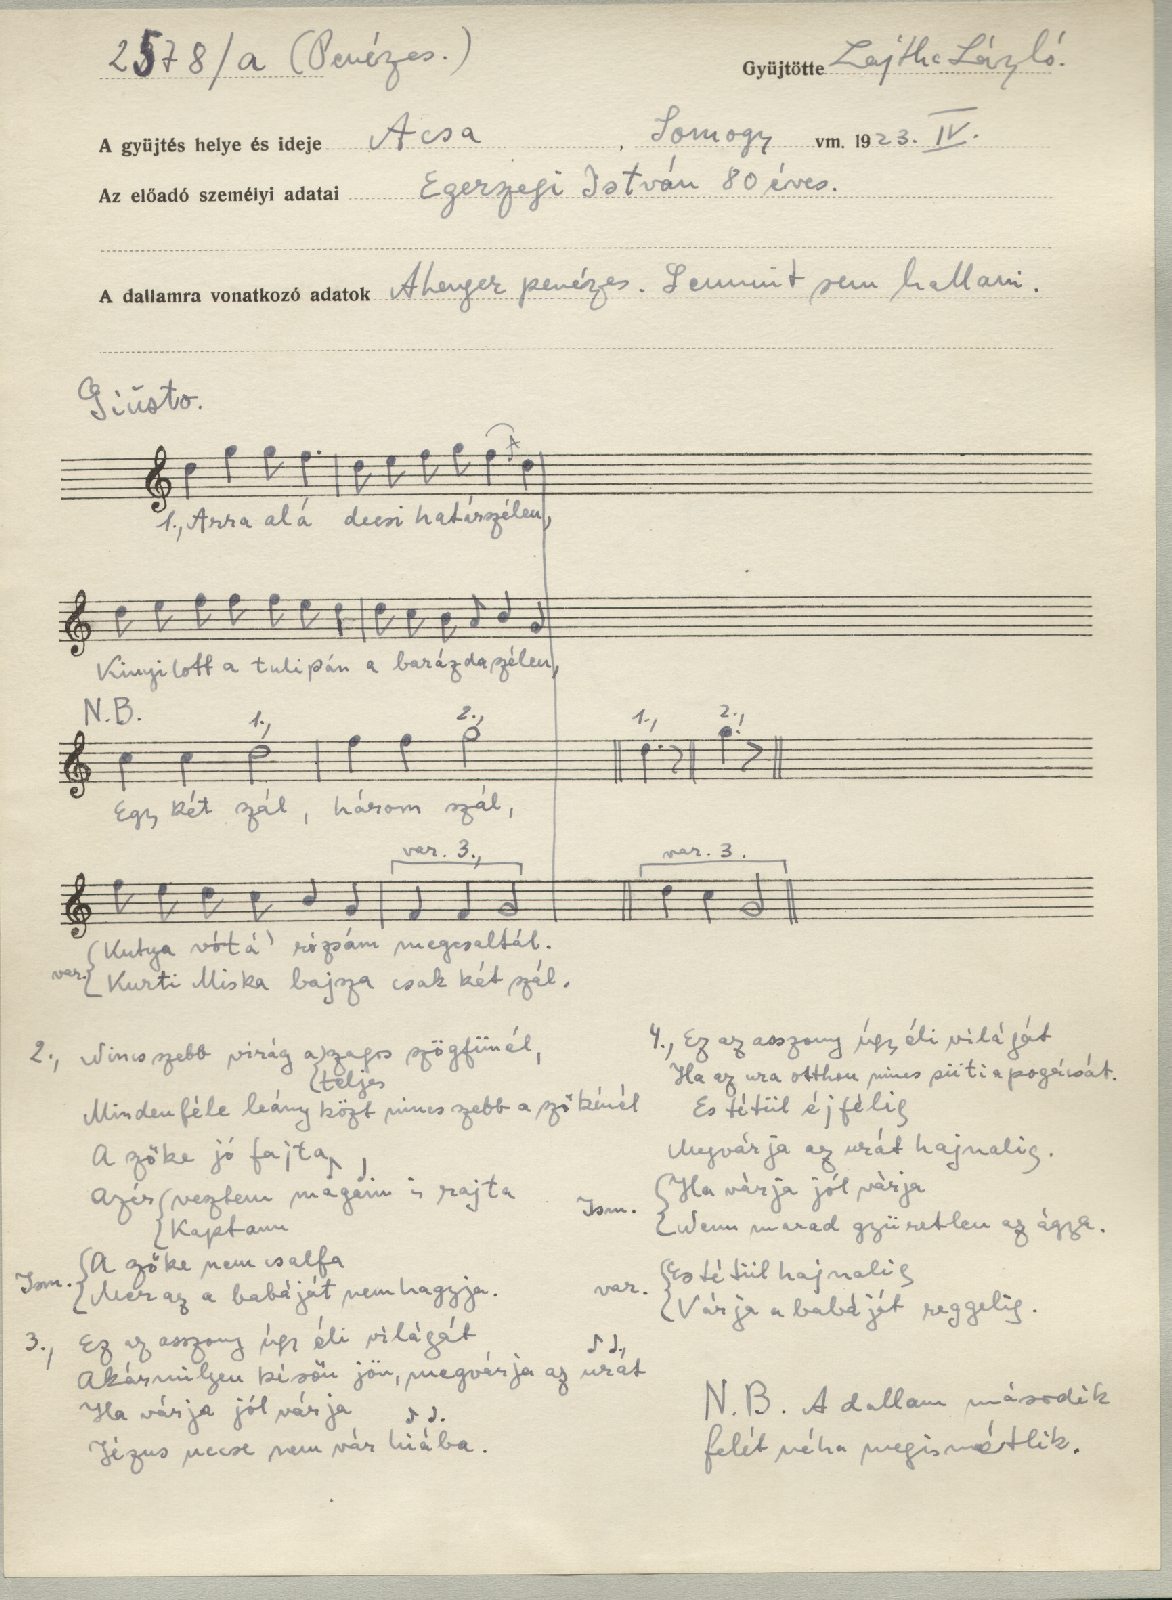 2578/a (Penézes.)
Gyüjtötte Lajtha László.
A gyüjtés helye és ideje Acsa, Somogy vm. 1923. IV.
Az előadó személyi adatai Egerszegi István 80 éves.
A dallamra vonatkozó adatok A henger penézes. Semmit sem hallani.
Giusto.
1., Arra alá decsi határszélen,
Kinyilott a tulipán a barázdaszélen,
N.B. 1., 2., 1., 2.,
Egy két szál, három szál,
var. 3., var. 3.
var. Kutya vótá' rózsám megcsaltál.
Kurti Miska bajsza csak két szál.
2., Nincs szebb virág a szagos szögfünél,
teljes
Mindenféle leány közt nincs szebb a szőkénél
A szőke jó fajta,
Azér vesztem magam is rajta
Kaptam
Ism. A szőke nem csalfa
Mer az a babáját nem hagyja.
3., Ez az asszony úgy éli világát
Akármilyen későn jön, megvárja az urát
Ha várja jól várja
Jézus uccse nem vár hiába.
4., Ez az asszony úgy éli világát
Ha az ura otthon nincs süti a pogácsát.
Estétül éjfélig
Megvárja az urát hajnalig.
Ism. Ha várja jól várja
Nem marad gyüretlen az ágya.
var. Estétül hajnalig
Várja a babáját reggelig.
N.B. A dallam második
felét néha megismétlik.